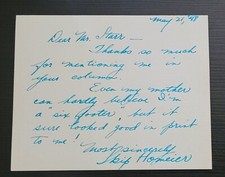 May 21, '48
Dear Mr. Starr —
Thanks so much
for mentioning me in
your column.
Even my mother
can hardly believe I'm
a "six footer", but it
sure looked good in print
to me!
Most sincerely
Skip Homeier